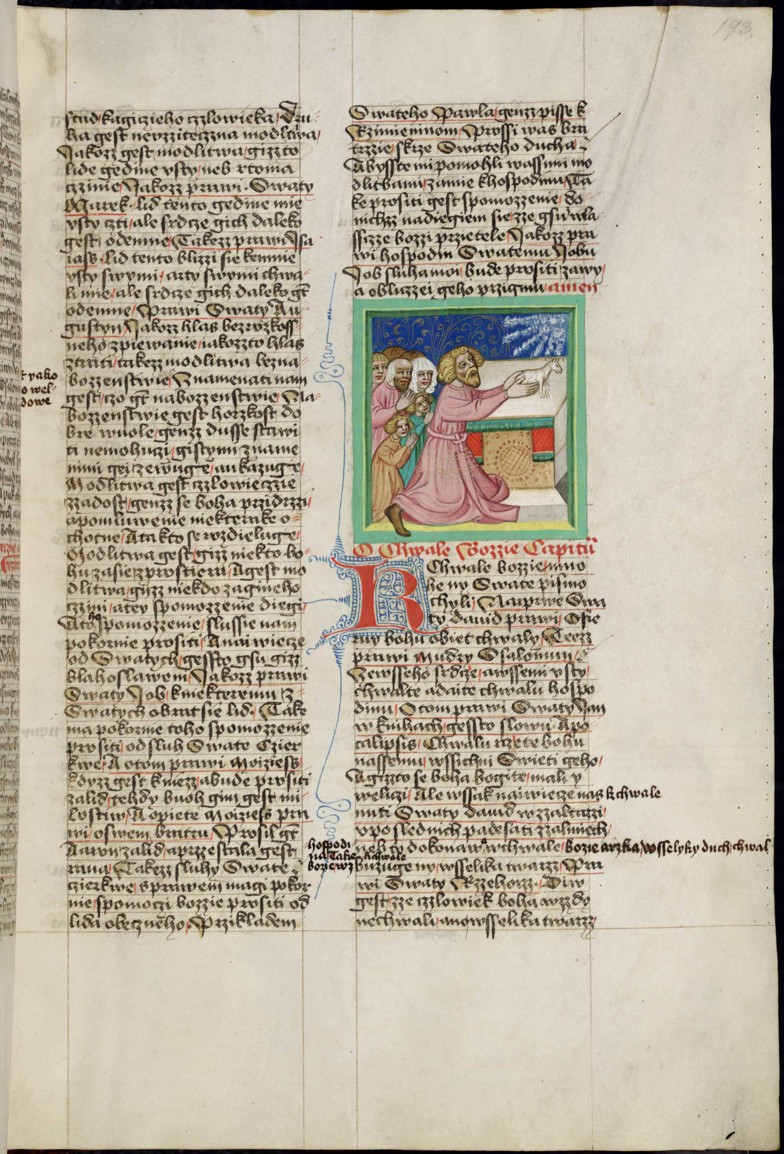 193.
stud kagizieho czlowieka, Dru
ha gest nevzziteczna modlitwa,
Jakozz gest modlitwa, gizz to
lide gedine vsty, neb rtoma
czinie, Jakozz prawi. Swaty
Marek. lid tento gedine mie
vsty czti, ale srdcze gich daleko
gest, odemne, Takezz prawi Isa
ias, lid tento blizzi sie kemnie
vsty swymi, arty swymi chwa
li mie, ale srdcze gich daleko gt
odemne, Prawi Swaty Au
gustyn, Jakozz hlas bez rozkoss
neho zpiewanie, iakozzto hlas
ztrati, takezz modlitwa bezna
bozzenstwie, Znamenati nam
gest, zo gt nabozzenstwie, Na
bozzenstwie gest horzkost do
bre wuole, genzz dusse stawi
ti nemohuzi, gistymi zname
nimi gei, zewuge, aukazuge,
Modlitwa gest czlowieczie
zzadost, genzz se boha przidrzzi,
apomluwenie niekterake o
chotne, Atakto se wzdieluge,
Modlitwa gest, gizz niekto bo
hu zasie prostieru, Agest mo
dlitwa, gizz niekdo zagineho
czini, atey spomozzenie diegi,
Ato spomozzenie, slussie nam
pokornie prositi, Anai wiecze
od Swatych, gessto gsu gizz
blahoslaweni, Jakozz prawi
Swaty Job kniekteremu, z
Swatych obrat sie lid, Take
ma pokorne toho spomozzenie
prositi, od sluh Swate Czier
kwe, A otom prawi Moiziess
kdyzz gest kniezz, abude prositi
zalid, tehdy buoh gim gest mi
lostiw, A opiete Moiziess pra
wi oswem bratru, Prosil gt
Aaron zalid, aprzestala gest
rana, Takezz sluhy Swate
czierkwe, sprawem magi pokor
nie, spomoczi bozzie prositi od
lida obeczneho, Przikladem
Swateho Pawla, genzz pisse k
Rzimieninom, Prossi was bra
trzzie, skrze Swateho ducha,
Abysste mi pomohli wassimi mo
dlitbami, zamie khospodinu, Ta
ke prositi gest spomozzenie, do
nichzz nadiegiem sie, zze gsu wla
sstie bozzi przietele, Jakozz pra
wi hospodin Swatemu Jobu
Job sluha moi, bude prositi zawy,
a oblizzei geho przigmu, amen
O Chwale Bozzie Capitu
Chwale bozzie, mno
he ny Swate pismo
chyli, Naiprwe Swa
ty dauid prawi, Ofie
ruy bohu obiet chwaly, Teez
prawi mudry Ssalomun,
Zewsseho srdcze, awssemi vsty,
chwalte adaite chwalu hospo
dinu, Otom prawi Swaty Jan
w knihach, gessto slowu Apo
calipsis, Chwalu rzete bohu
nassemu, wssichni Swieti geho,
Agizzto se boha bogite, mali y
welizi, Ale wssak nai wieze nas k chwale
nuti Swaty dauid w zzaltarzi
vposlednich padesati zzalmiech,
neb to dokonaw wchwale, bozie a rzka, wsselyky duch, chwal
buzuge ny, wsselika twarzz, Pra
wi Swaty Rzzehorzz, Diw
gest, zze czlowiek boha wzzdo
nechwali, anowsselika twarzz,
t yako
o wel
dowe
hospodi
na Take
bozie wz
kchwale